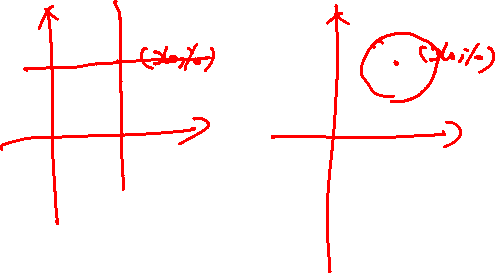 (x₀,y₀)
(x₀,y₀)